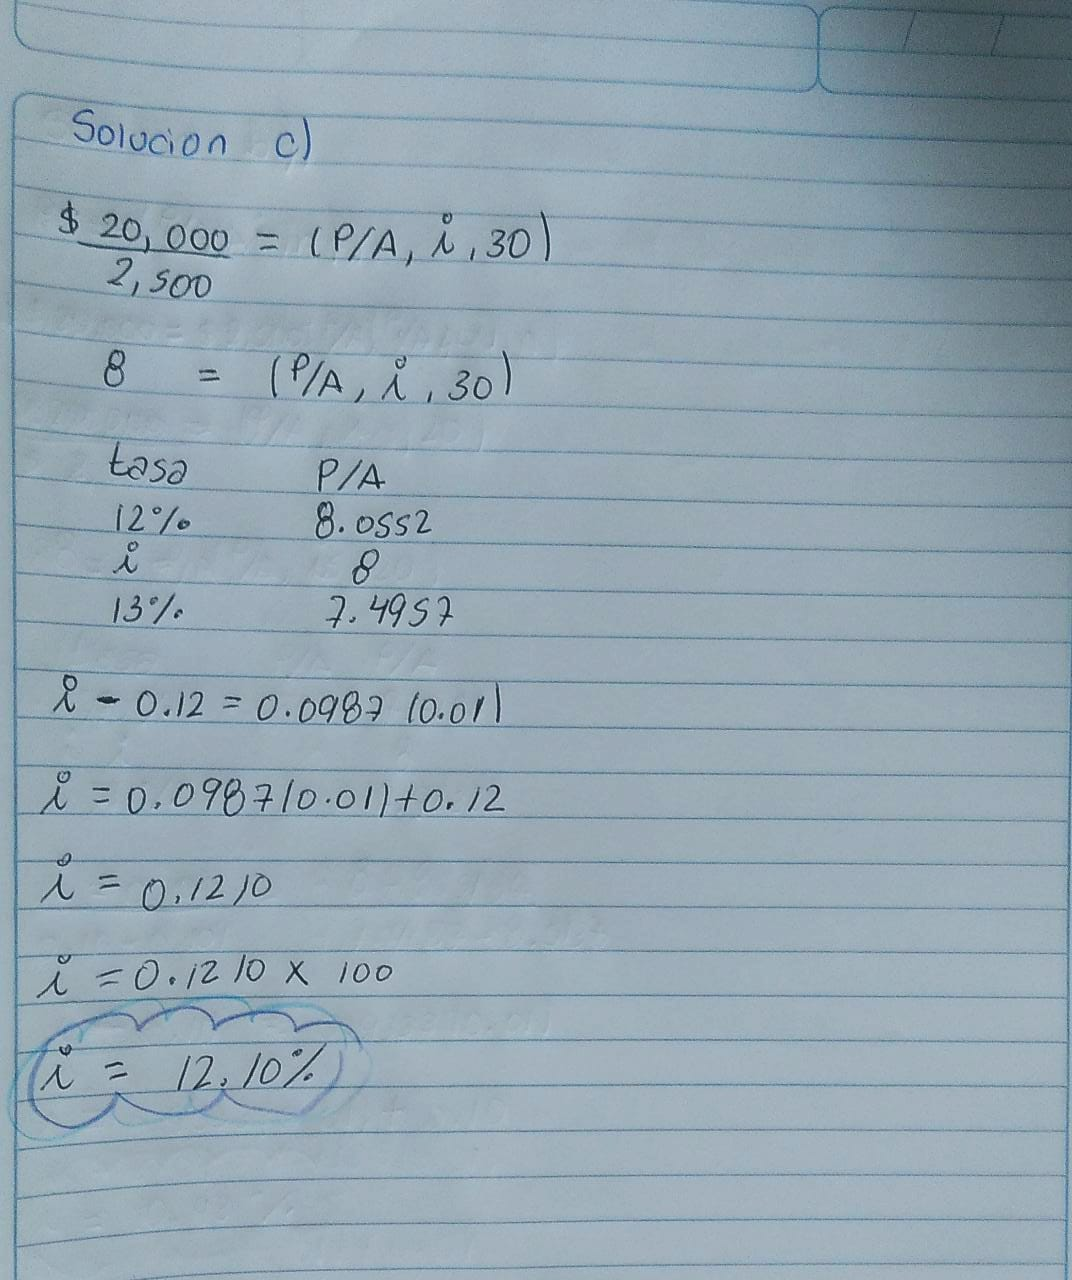 Solucion c)
$ 20,000 = (P/A, i, 30)
2,500
8 = (P/A, i, 30)
tasa P/A
12% 8.0552
i 8
13% 7.4957
i - 0.12 = 0.0987 (0.01)
i = 0.0987(0.01)+0.12
i = 0.1210
i = 0.1210 x 100
i = 12.10%